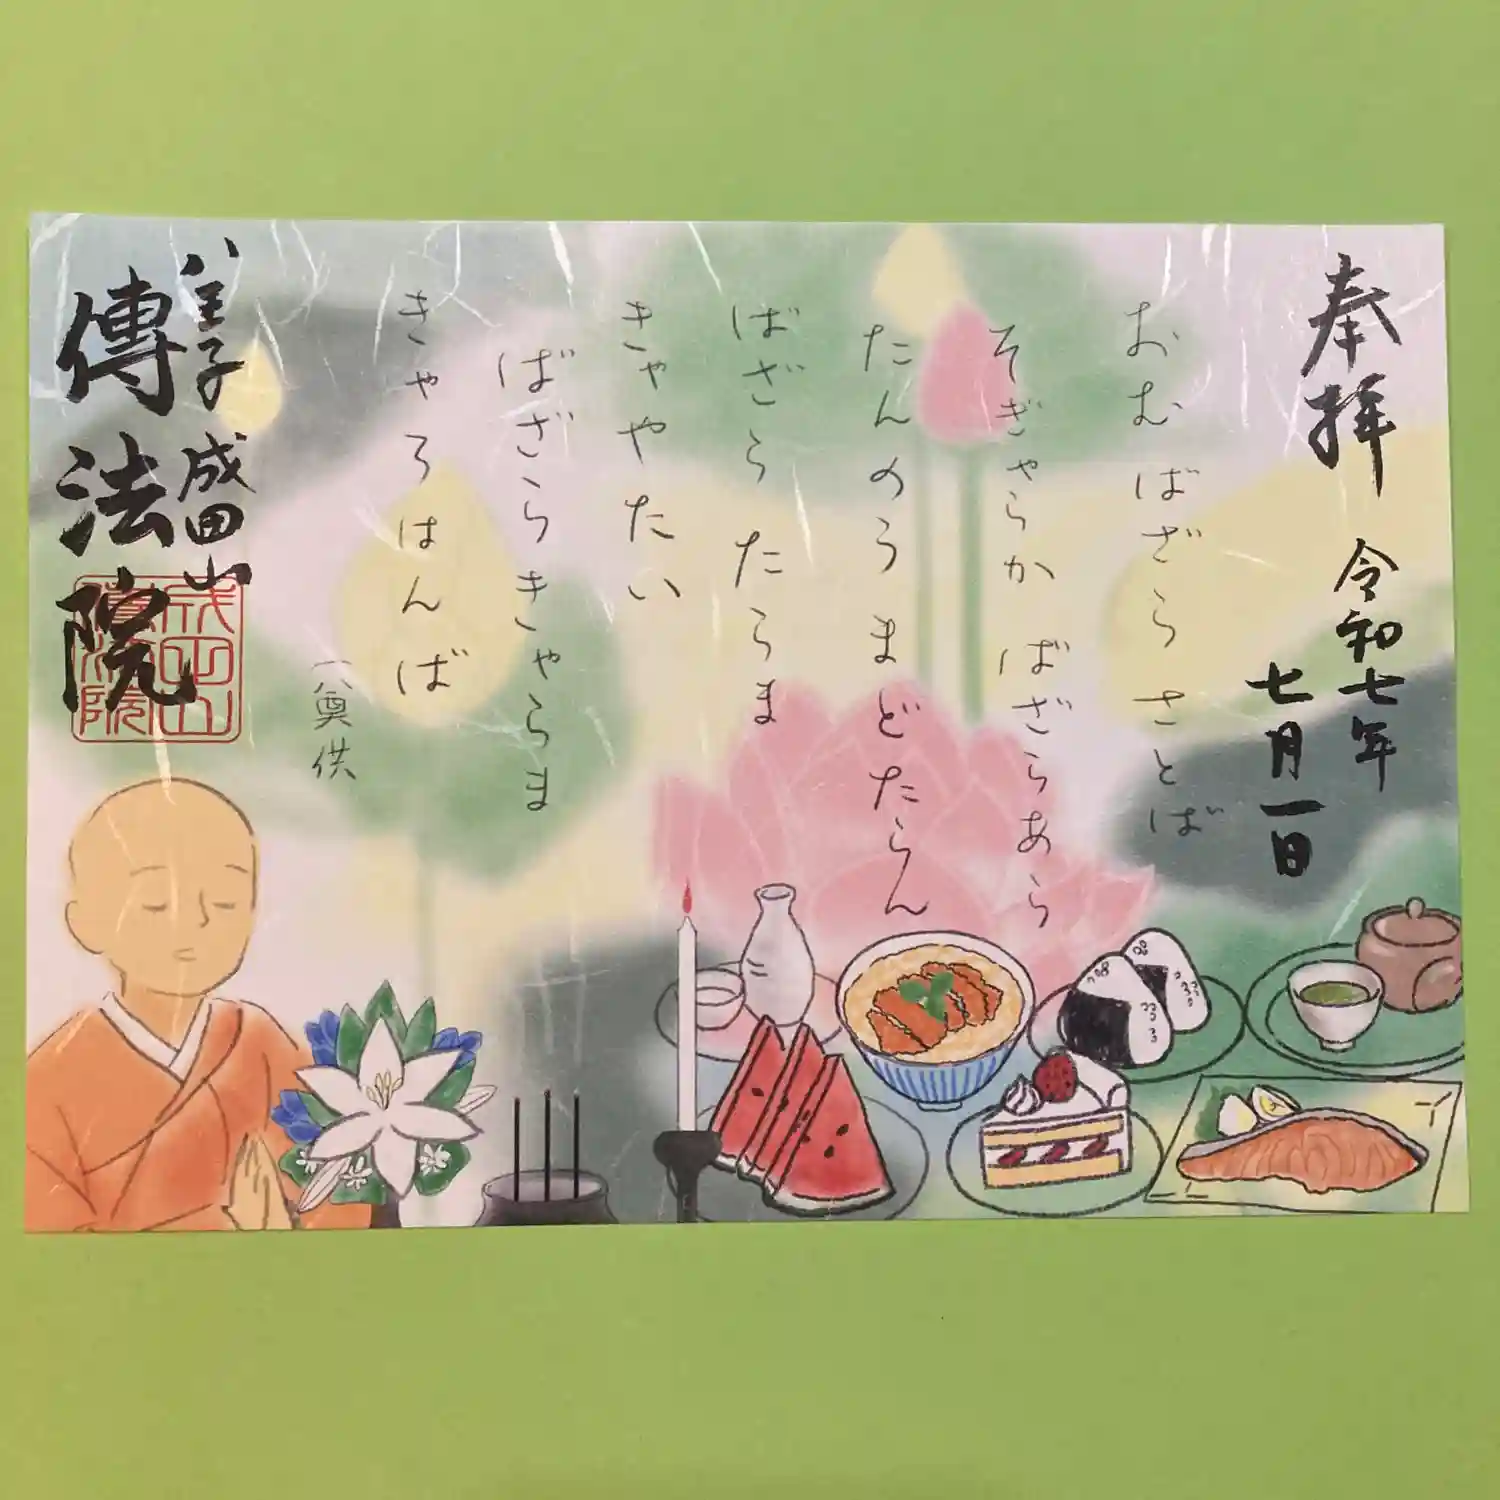 奉拝
令和七年
七月一日
おむ ばざら さとば
そぎゃらか ばざらあら
たんのう まどたらん
ばざら たらま
きゃやたい
ばざら きゃらま
きゃろ はんば
八奠供
八王子 成田山
傳法院
成田山
傳法院